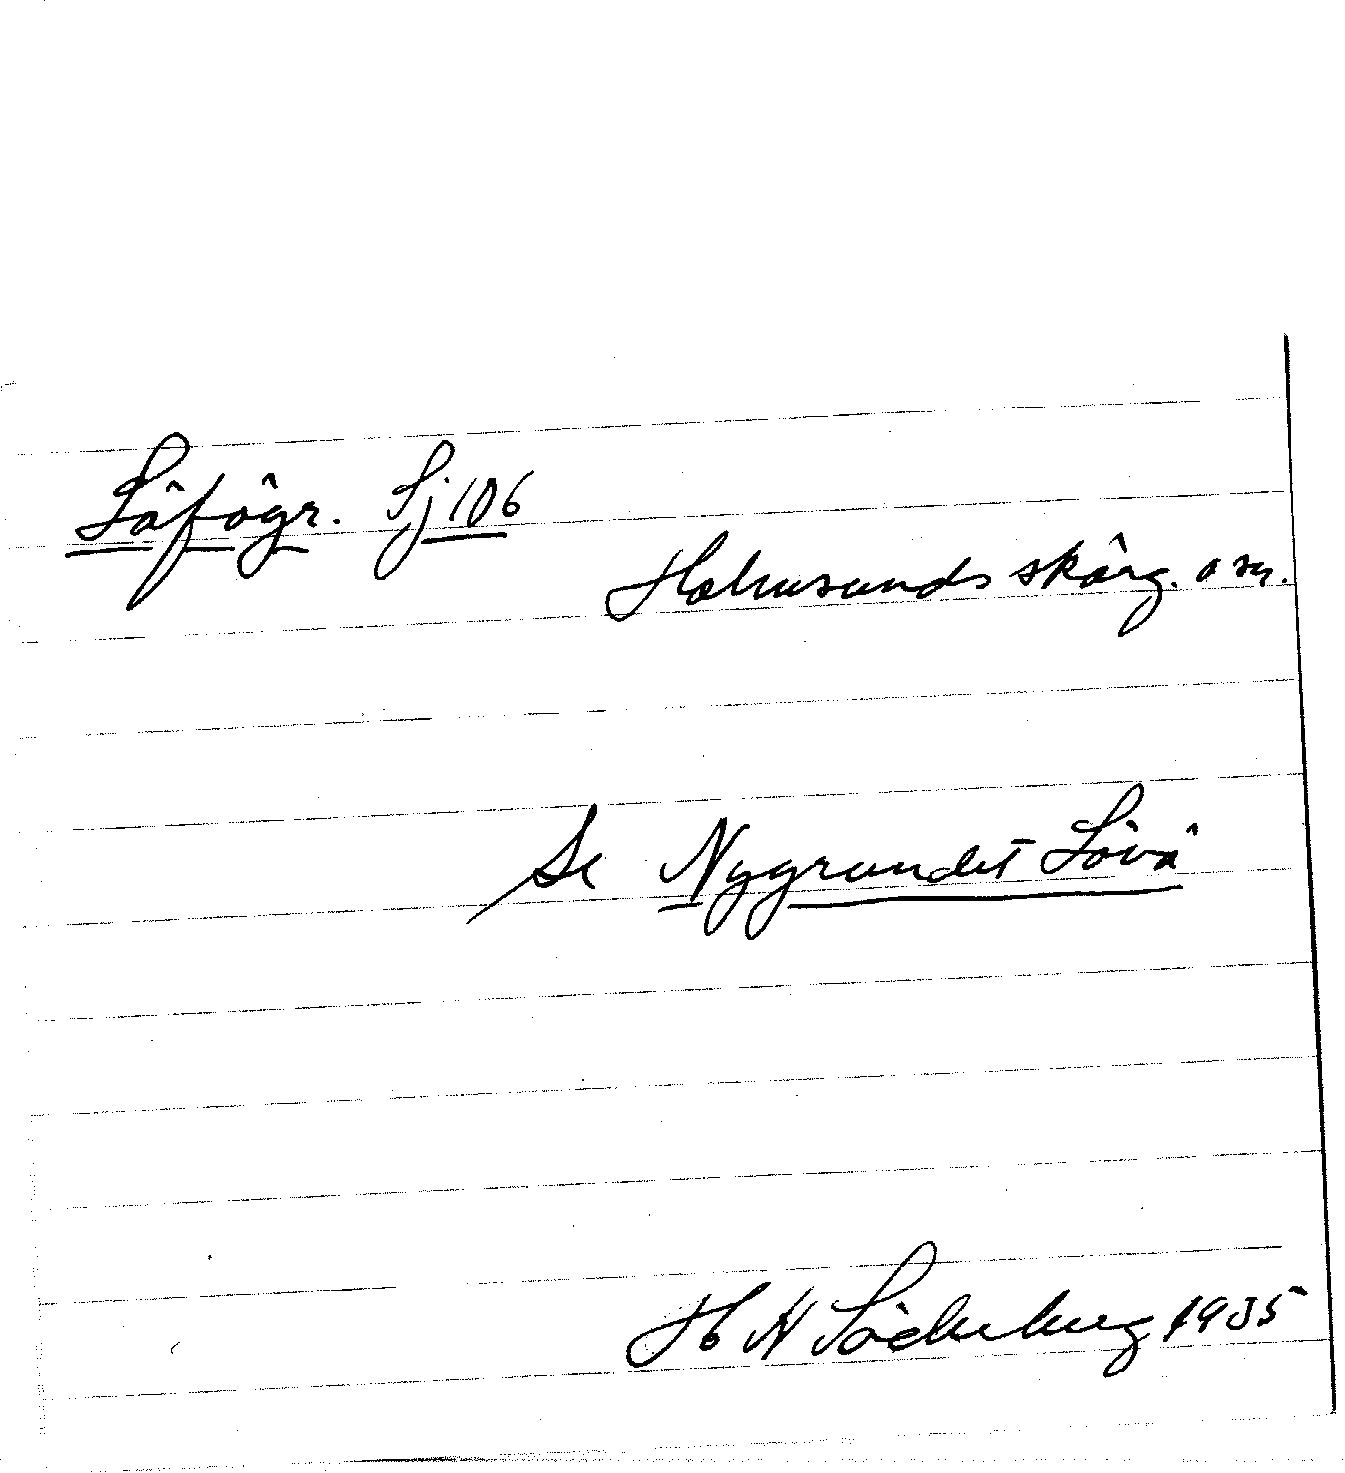 Löfögr. Sj 106
Holmsunds skärg. o sn.
Se Nygrundet Lövö
H N Söderberg 1935